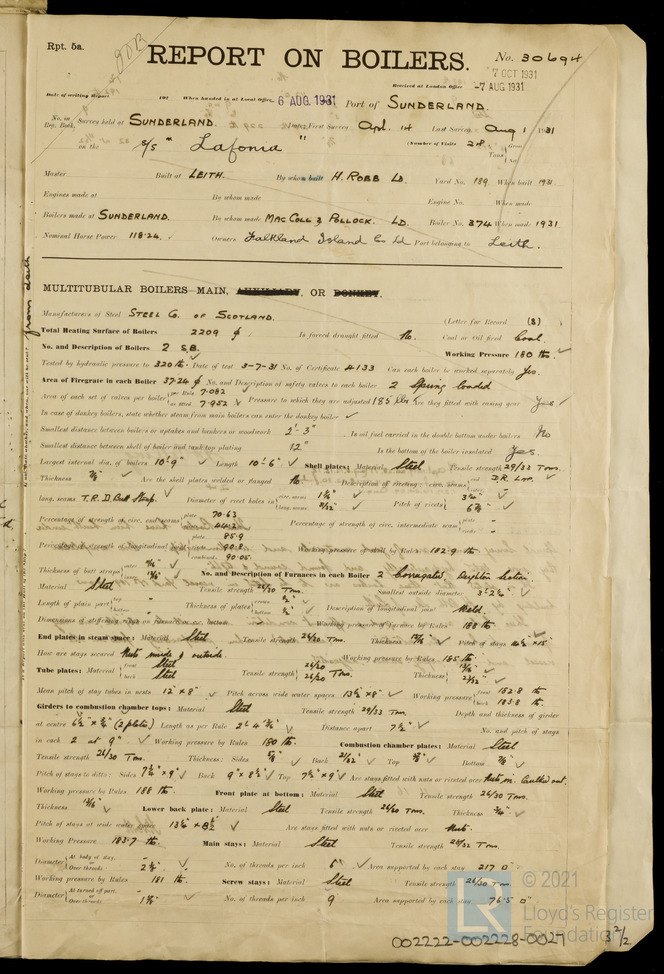 Rpt. 5a.
REPORT ON BOILERS.
No. 30694
7 OCT 1931
Received at London Office -7 AUG 1931
Date of writing Report 193 When handed in at Local Office 6 AUG. 1931 Port of SUNDERLAND.
No. in Reg. Book. Survey held at SUNDERLAND. Date, First Survey Apr. 14 Last Survey Aug 1 1931
on the S/S "Lafonia" (Number of Visits 28) Tons { Gross Net
Master Built at LEITH. By whom built H. ROBB LD. Yard No. 189. When built 1931.
Engines made at By whom made Engine No. When made
Boilers made at SUNDERLAND. By whom made MACCOLL & POLLOCK. LD. Boiler No. 374 When made 1931
Nominal Horse Power 118.24. Owners Falkland Island Co Ld Port belonging to Leith.
MULTITUBULAR BOILERS MAIN, AUXILIARY, OR DONKEY.
Manufacturers of Steel STEEL CO. OF SCOTLAND. (Letter for Record (S)
Total Heating Surface of Boilers 2209 Is forced draught fitted No. Coal or Oil fired Coal.
No. and Description of Boilers 2 S.B. Working Pressure 180 lbs.
Tested by hydraulic pressure to 320 lbs. Date of test 3-7-31 No. of Certificate 4133 Can each boiler be worked separately Yes.
Area of Firegrate in each Boiler 37.24 No. and Description of safety valves to each boiler 2 Spring loaded
Area of each set of valves per boiler { per Rule 7.082 as fitted 7.952 Pressure to which they are adjusted 185 lbs Are they fitted with easing gear Yes
In case of donkey boilers, state whether steam from main boilers can enter the donkey boiler
Smallest distance between boilers or uptakes and bunkers or woodwork 2'-3" Is oil fuel carried in the double bottom under boilers No
Smallest distance between shell of boiler and tank top plating 12" Is the bottom of the boiler insulated Yes.
Largest internal dia. of boilers 10'-9" Length 10'-6" Shell plates: Material Steel Tensile strength 29/33 Tons.
Thickness Are the shell plates welded or flanged No Description of riveting: circ. seams { end D.R. LAP. inter.
long. seams T.R.D. Butt Strap. Diameter of rivet holes in { circ. seams long. seams Pitch of rivets {
Percentage of strength of circ. end seams { plate 70.63 rivets 44.2 Percentage of strength of circ. intermediate seam { plate - rivets -
Percentage of strength of longitudinal joint { plate 85.9 rivets 90.8 combined 90.05 Working pressure of shell by Rules 182.9 lbs.
Thickness of butt straps { outer inner No. and Description of Furnaces in each Boiler 2 Corrugated, Deighton Section
Material Steel Tensile strength 26/30 Tons. Smallest outside diameter
Length of plain part { top bottom Thickness of plates { crown bottom Description of longitudinal joint Weld.
Dimensions of stiffening rings on furnace or c.c. bottom Working pressure of furnace by Rules 188 lbs
End plates in steam space: Material Steel Tensile strength 26/30 Tons. Thickness Pitch of stays
How are stays secured Nuts inside & outside. Working pressure by Rules 185 lbs.
Tube plates: Material { front Steel back Steel Tensile strength { 26/30 26/30 Tons. Thickness {
Mean pitch of stay tubes in nests 12" x 8" Pitch across wide water spaces 13½" x 8" Working pressure { front 182.8 lbs back 185.8 lbs
Girders to combustion chamber tops: Material Steel Tensile strength 29/33 Tons Depth and thickness of girder
at centre (2 plates) Length as per Rule Distance apart No. and pitch of stays
in each 2 at 9" Working pressure by Rules 180 lbs. Combustion chamber plates: Material Steel
Tensile strength 26/30 Tons. Thickness: Sides Back Top Bottom
Pitch of stays to ditto: Sides Back Top Are stays fitted with nuts or riveted over
Working pressure by Rules 188 lbs. Front plate at bottom: Material Steel Tensile strength 26/30 Tons.
Thickness Lower back plate: Material Steel Tensile strength 26/30 Tons. Thickness
Pitch of stays at wide water space Are stays fitted with nuts or riveted over Nuts.
Working Pressure 183.7 lbs. Main stays: Material Steel Tensile strength 28/32 Tons.
Diameter { At body of stay, or Over threads No. of threads per inch 6 Area supported by each stay 217
Working pressure by Rules 181 lbs. Screw stays: Material Steel Tensile strength 26/30 Tons
Diameter { At turned off part, or Over threads No. of threads per inch 9 Area supported by each stay 76.5
© 2021
Lloyd's Register
Foundation
002222-002228-0027